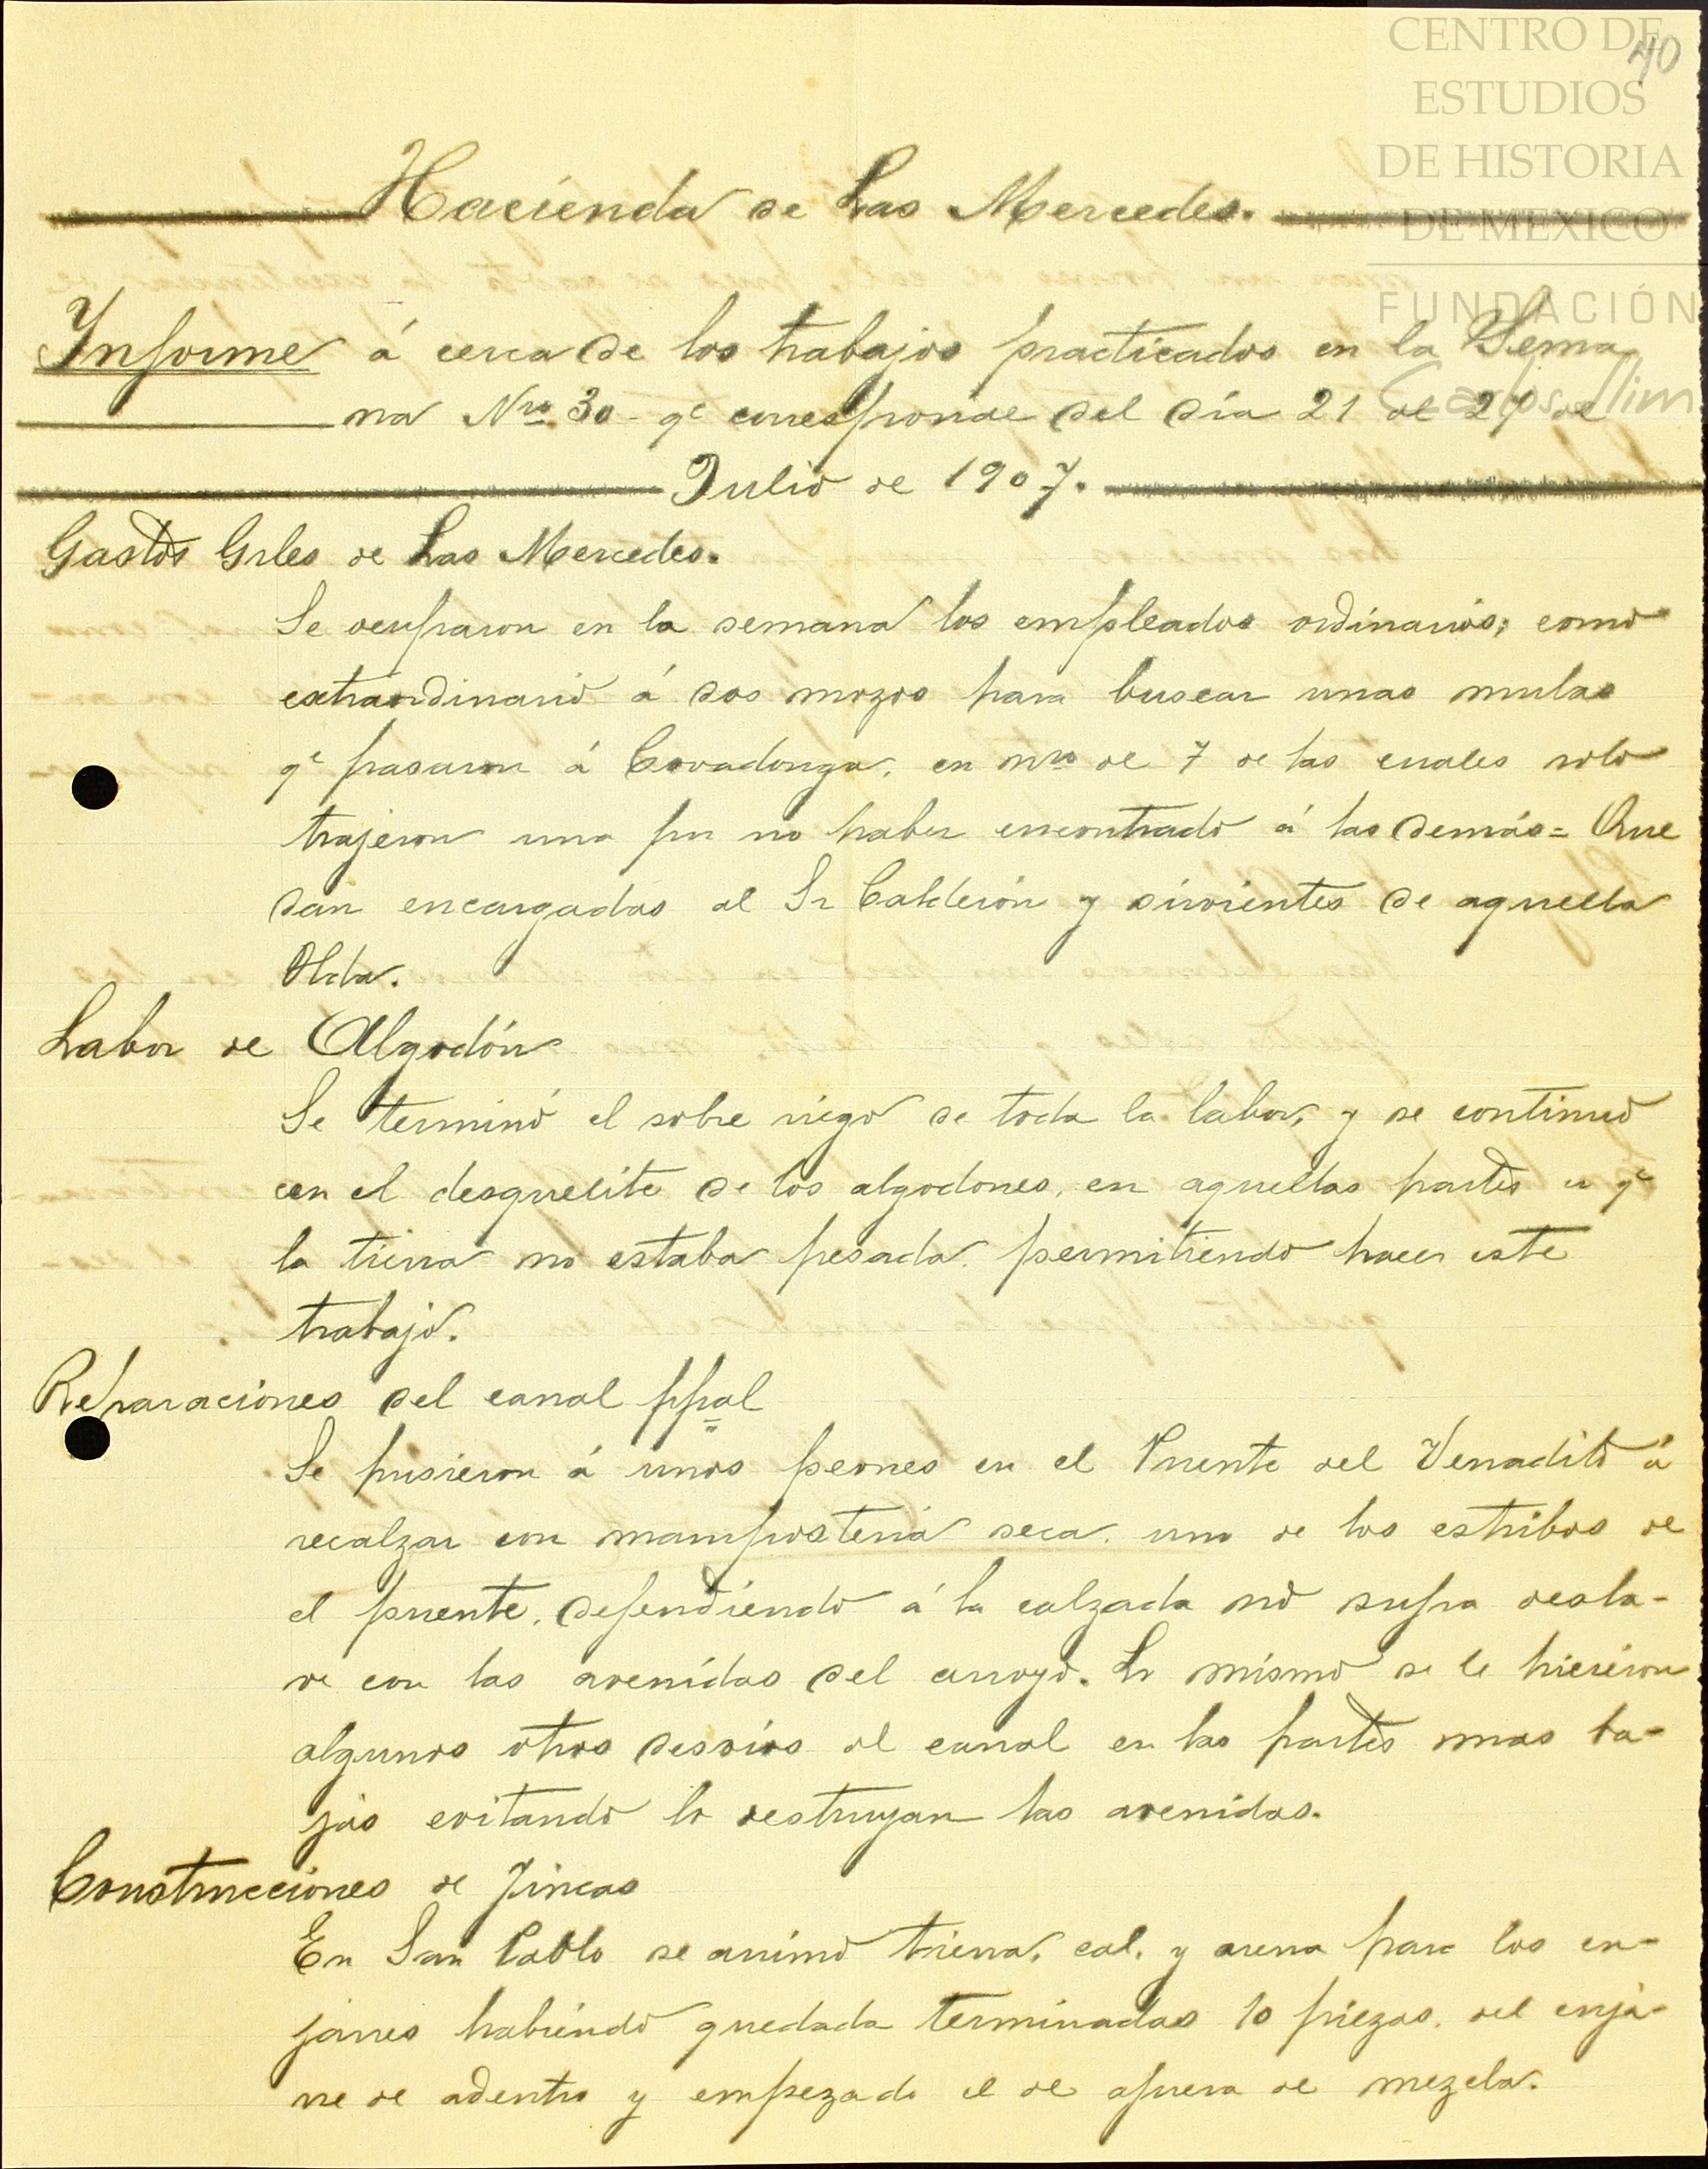 CENTRO DE
ESTUDIOS
DE HISTORIA
DE MEXICO
FUNDACIÓN
Carlos Slim
40
Hacienda de Las Mercedes.
Informe á cerca de los trabajos practicados en la Sema
na Nro. 30 - qe corresponde del día 21 al 27 de
Julio de 1907.
Gastos Grles de Las Mercedes.
Se ocuparon en la semana los empleados ordinarios; como
extraordinario á dos mozos para buscar unas mulas
qe pasaron á Covadonga, en nro de 7 de las cuales solo
trajeron una por no haber encontrado á las demás = Que
dan encargadas al Sr Calderón y sirvientes de aquella
Hda.
Labor de Algodón
Se terminó el sobre riego de toda la labor, y se continuó
con el desquelite de los algodones, en aquellas partes en qe
la tierra no estaba pesada, permitiendo hacer este
trabajo.
Reparaciones del canal ppal
Se pusieron á unos peones en el Puente del Venadito á
recalzar con mampostería seca, uno de los estribos de
el puente, defendiendo á la calzada no sufra desla-
ve con las avenidas del arroyo. Lo mismo se le hicieron
algunos otros desvíos al canal en las partes mas ba-
jas evitando lo destruyan las avenidas.
Construcciones de Fincas
En San Pablo se arrimó tierra, cal, y arena para los en-
jarres habiendo quedada terminadas 10 piezas, del enja-
rre de adentro y empezado el de afuera de mezcla.